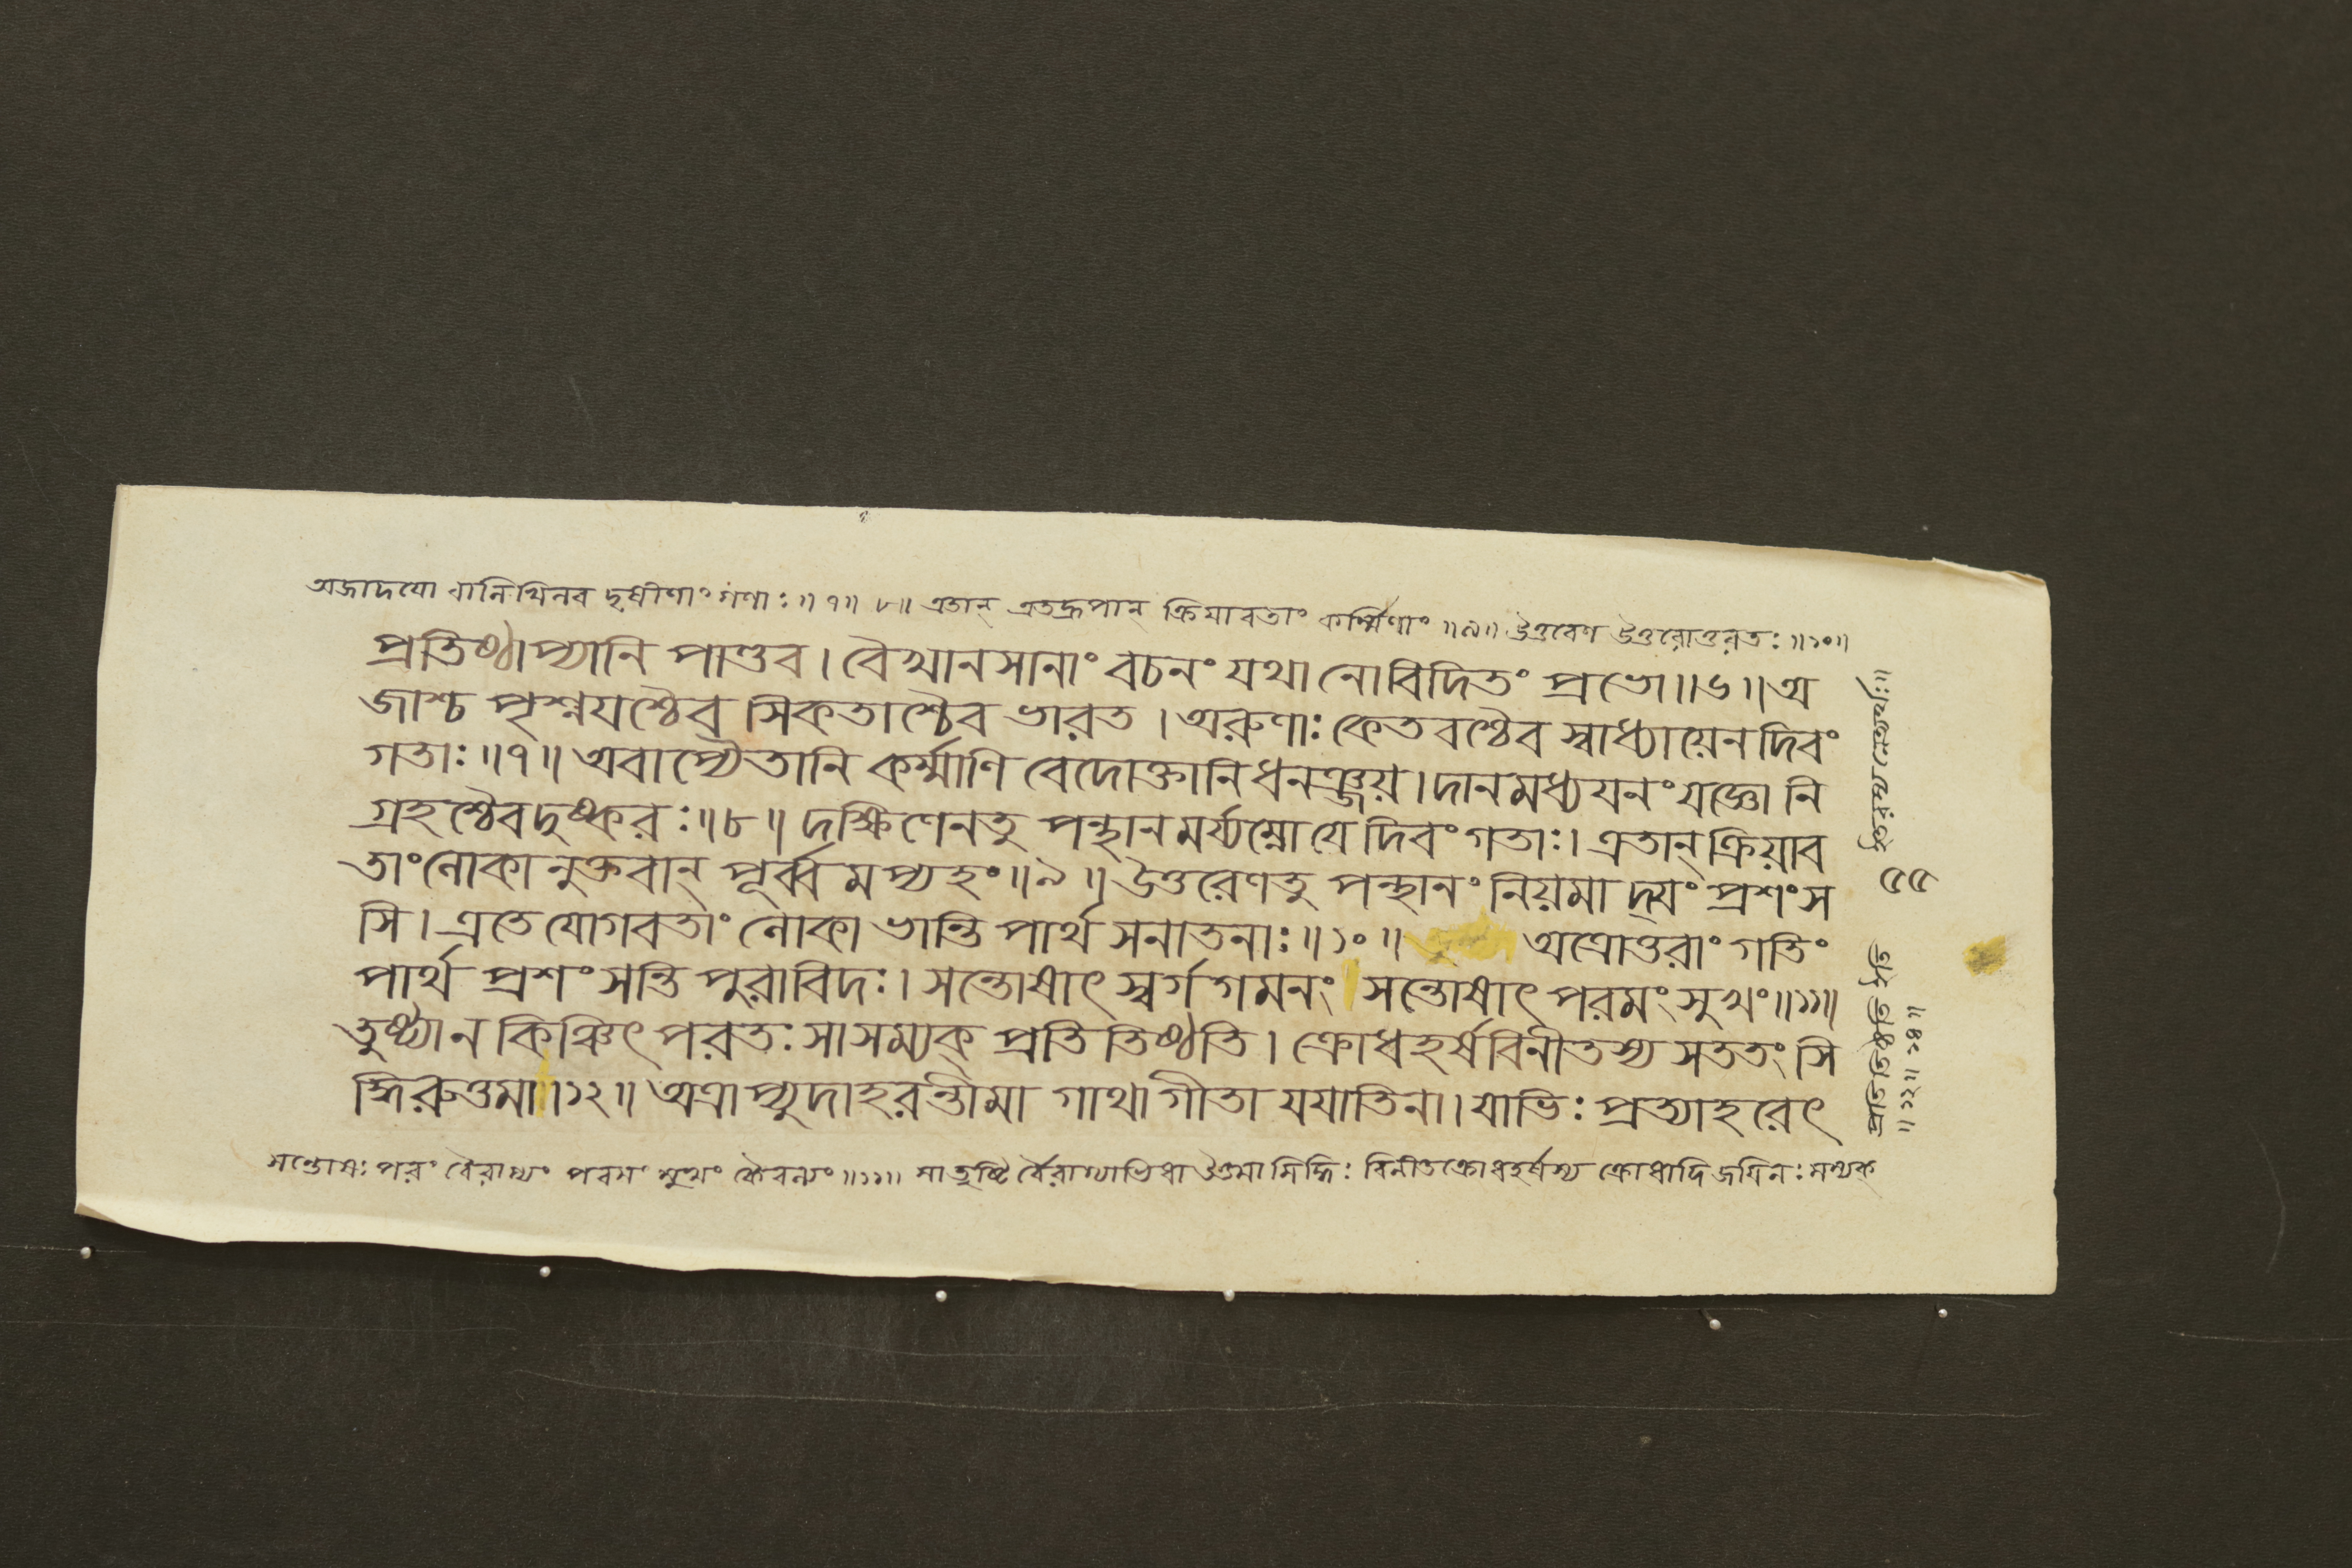 অজাদয়ো বানিখিনব ছষীণাং গণাঃ ॥৭॥ ৮॥ এতান্ এতদ্রূপান্ ক্রিয়াবতাং কর্ম্মিণাং ॥৯॥ উত্তরেণ উত্তরোত্তরতঃ ॥১০॥
প্রতিষ্ঠাপ্যানি পাণ্ডব । বৈখানসানাং বচনং যথা নো বিদিতং প্রভো ॥৬॥ অ
জাশ্চ পৃশ্নয়শ্চৈব সিকতাশ্চৈব ভারত । অরুণাঃ কেতবশ্চৈব স্বাধ্যায়েন দিবং
গতাঃ ॥৭॥ অবাপ্যৈতানি কর্ম্মাণি বেদোক্তানি ধনঞ্জয় । দানমধ্যয়নং যজ্ঞো নি
গ্রহশ্চৈব দুষ্করঃ ॥৮॥ দক্ষিণেন তু পন্থানমর্য্যম্নো যে দিবং গতাঃ । এতান্ ক্রিয়াব
তাং লোকানুক্তবান্ পূর্ব্বমপ্যহং ॥৯॥ উত্তরেণ তু পন্থানং নিয়মাদ্যং প্রশংস
সি । এতে যোগবতাং লোকা ভান্তি পার্থ সনাতনাঃ ॥১০॥ অত্রোত্তরাং গতিং
পার্থ প্রশংসন্তি পুরাবিদঃ । সন্তোষাৎ স্বর্গগমনং সন্তোষাৎ পরমং সুখং ॥১১॥
তুষ্ট্যা ন কিঞ্চিৎ পরতঃ সা সম্যক্ প্রতিতিষ্ঠতি । ক্রোধহর্ষবিনীতস্য সততং সি
দ্ধিরুত্তমা ॥১২॥ অত্রাপ্যুদাহরন্তীমা গাথা গীতা যযাতিনা । যাভিঃ প্রত্যাহরেৎ
সন্তোষঃ পরং বৈরাগ্যং পরমং সুখং কৈবল্যং ॥১১॥ সা তুষ্টি র্বৈরাগ্যাভিধা উত্তমা সিদ্ধিঃ বিনীতক্রোধহর্ষস্য ক্রোধাদিজয়িনঃ সম্যক্
প্রতিতিষ্ঠতি
॥১২॥ ১৪॥
৫৫